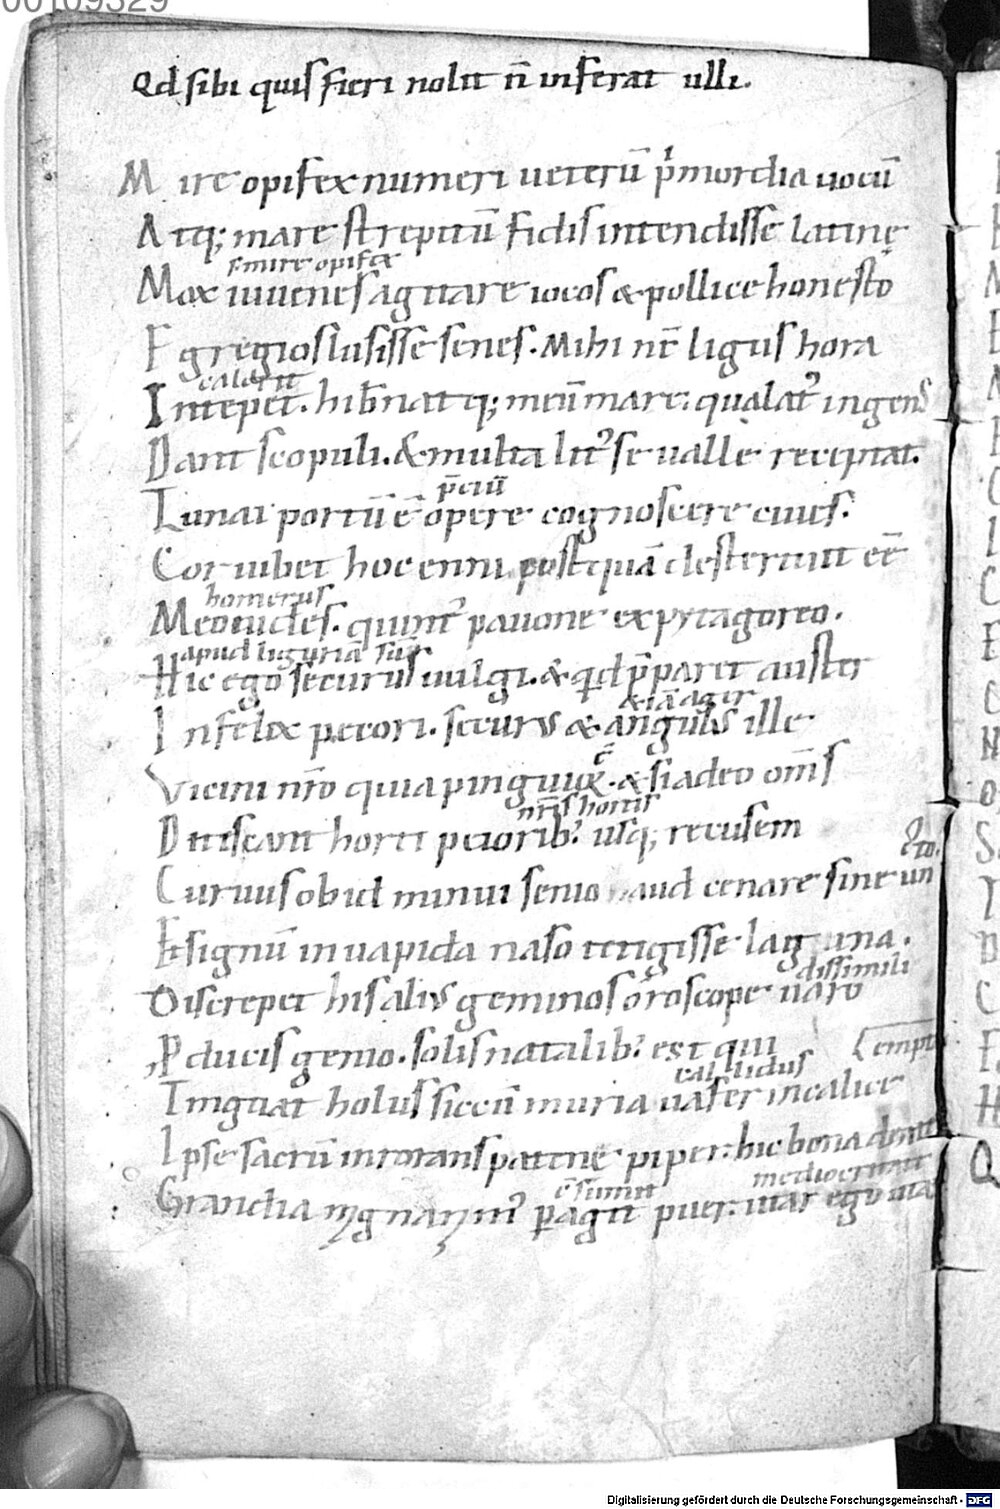 00109329
Qd sibi quis fieri nolit n̄ inferat ulli.
Mire opifex numeri ueterū p̄mordia uocū
Atq; mare strepitū fidis intendisse latinę
s. mire opifex
Mox iuuenes agitare iocos & pollice honesto
Egregios lusisse senes. Mihi nc̄ ligus hora
calorū
Intepet. hib̄nat q; meū mare: qua lat᷒ ingens
Dant scopuli. & multa lit᷒ se ualle receptat.
p̄ciū
Lunai portū ē opere cognoscere ciues.
Cor iubet hoc enni postquā destertuit eē
homerus
Meonides. quint᷒ pauone ex pytagoreo.
apud liguriā sū
Hic ego securus uulgi. & qd p̄paret auster
& iā ager
Infelix pecori. securus & angulus ille
Vicini nr̄o quia pinguior. & si adeo om̄s
nr̄is hortis
Ditiscant horti peiorib᷒. usq; recusem
cto.
Curuus ob id minui senio haud cenare sine un
Et signū in uapida naso tetigisse laguna.
dissimili
Discrepet his alius geminos oroscope uaro
Pducis genio. solis natalib᷒ est qui
[empta
callidus
Tinguat holus siccū muria uafer in calice
Ipse sacrū inrorans patinę piper: hic bona dente
c̄sumit mediocritate
Grandia magnanim᷒ pagit puer: utar ego uta
Digitalisierung gefördert durch die Deutsche Forschungsgemeinschaft - DFG